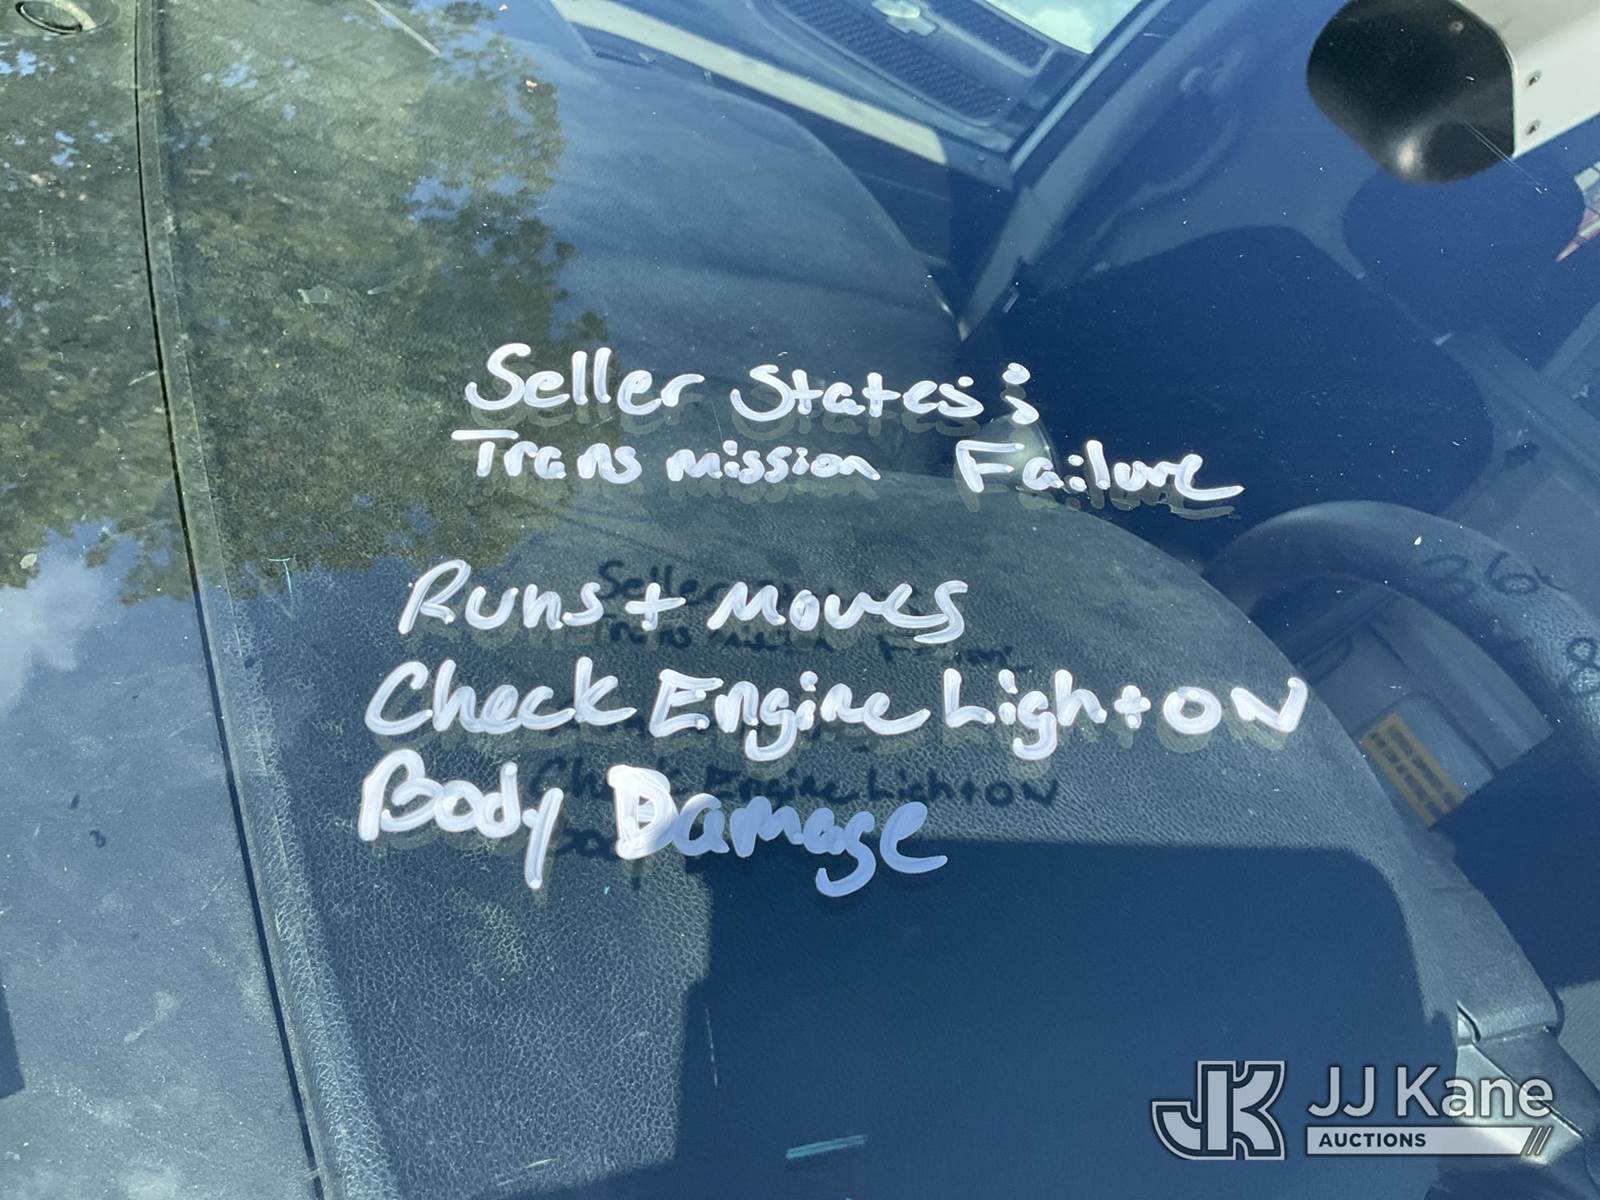 Seller States:
Transmission Failure
Runs + Moves
Check Engine Light ON
Body Damage
JK JJ Kane
AUCTIONS